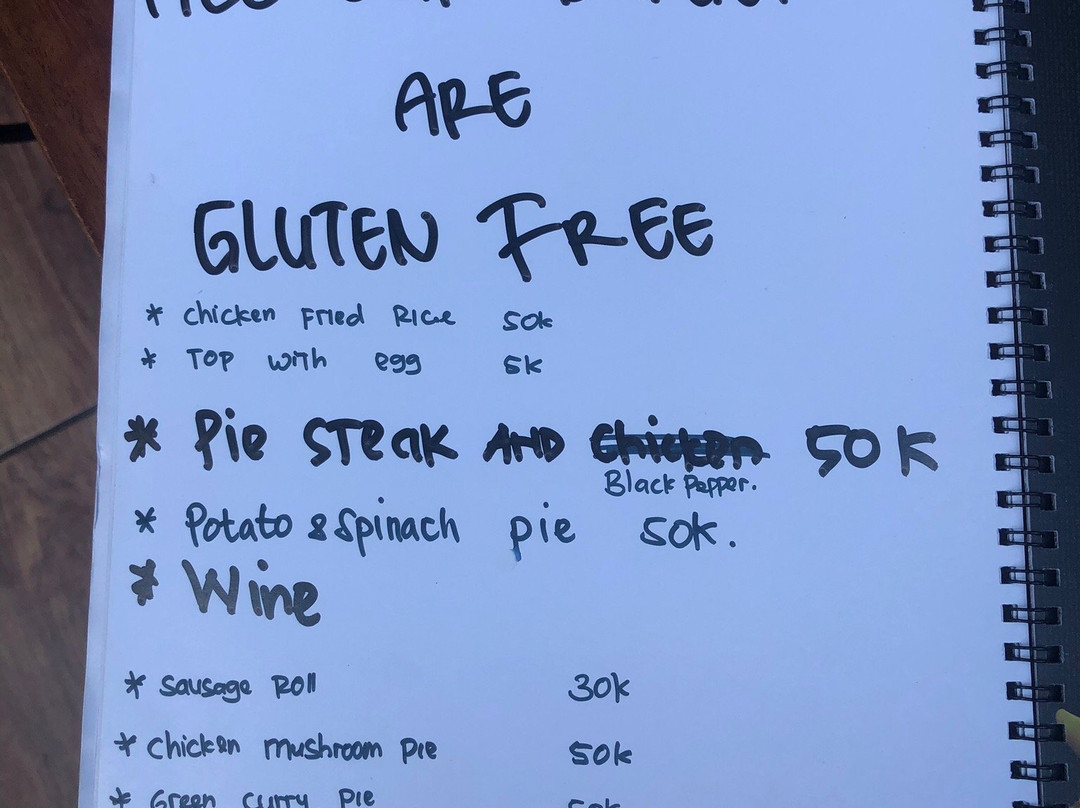 ARE
GLUTEN FREE
* Chicken Fried Rice 50k
* TOP with egg 5k
* Pie STeak AND Chicken 50K
Black Pepper.
* Potato & Spinach pie 50k.
* Wine
* Sausage Roll 30k
* Chicken mushroom Pie 50k
* Green curry Pie